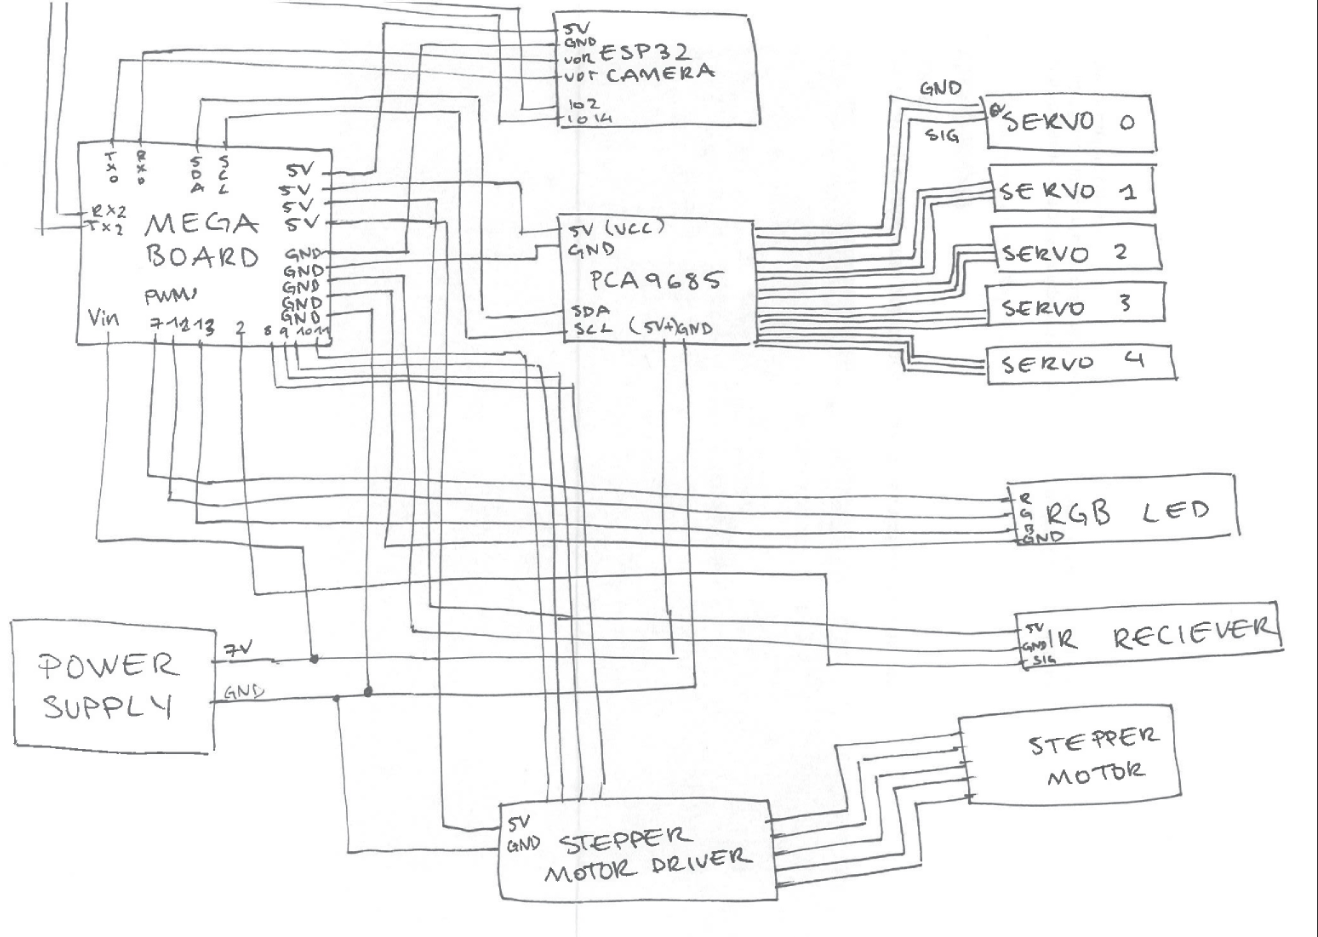 5V
GND
VOR ESP32
VOT CAMERA
IO2
IO14
GND
SERVO 0
SIG
SERVO 1
SERVO 2
SERVO 3
SERVO 4
TX0
RX0
SDA
SCL
5V
5V
5V
5V
RX2
TX2
MEGA
BOARD
GND
GND
GND
GND
GND
PWM
Vin
7 12 13 2 8 9 10 11
5V (VCC)
GND
PCA9685
SDA
SCL (5V+) GND
R
G
B
GND
RGB LED
5V
GND
SIG
IR RECIEVER
POWER
SUPPLY
7V
GND
STEPPER
MOTOR
5V
GND
STEPPER
MOTOR DRIVER